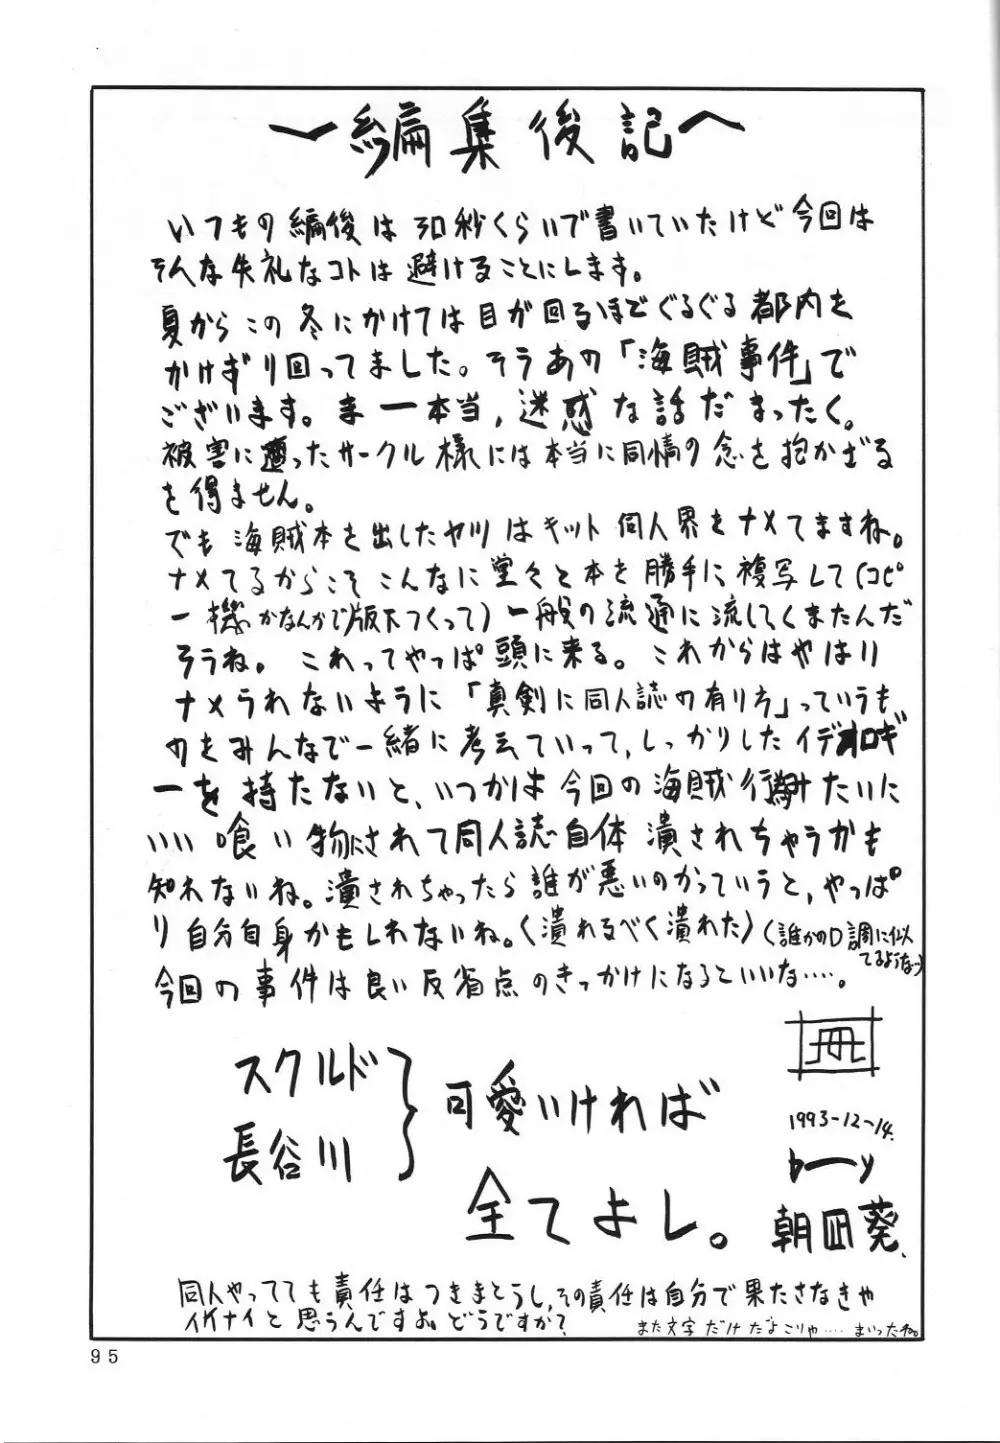 ～編集後記～
いつもの編後は30秒くらいで書いていたけど今回は
そんな失礼なコトは避けることにします。
夏からこの冬にかけては目が回るほどぐるぐる都内を
かけずり回ってました。そうあの「海賊事件」で
ございます。まー本当,迷惑な話だまったく。
被害に遭ったサークル様には本当に同情の念を抱かざる
を得ません。
でも海賊本を出したヤツはキット同人界をナメてますね。
ナメてるからこそこんなに堂々と本を勝手に複写して(コピ
ー機かなんかで版下つくって)一般の流通に流してくまたんだ
そうね。これってやっぱ頭に来る。これからはやはり
ナメられないように「真剣に同人誌の有り方」っていうも
のをみんなで一緒に考えていって,しっかりしたイデオロギ
ーを持たないと、いつかは今回の海賊行為みたいに
いい喰い物にされて同人誌自体潰されちゃうかも
知れないね。潰されちゃったら誰が悪いのかっていうと、やっぱ
り自分自身かもしれないね。〈潰れるべく潰れた〉(誰かのD調に似
てるような…)
今回の事件は良い反省点のきっかけになるといいな‥‥。
スクルド
長谷川
}可愛いければ
全てよし。
1993-12-14.
by
朝凪葵.
同人やってても責任はつきまとうし、その責任は自分で果たさなきゃ
イケナイと思うんですよ。どうですか?
また文字だけだよこりゃ‥‥まいったね。
95